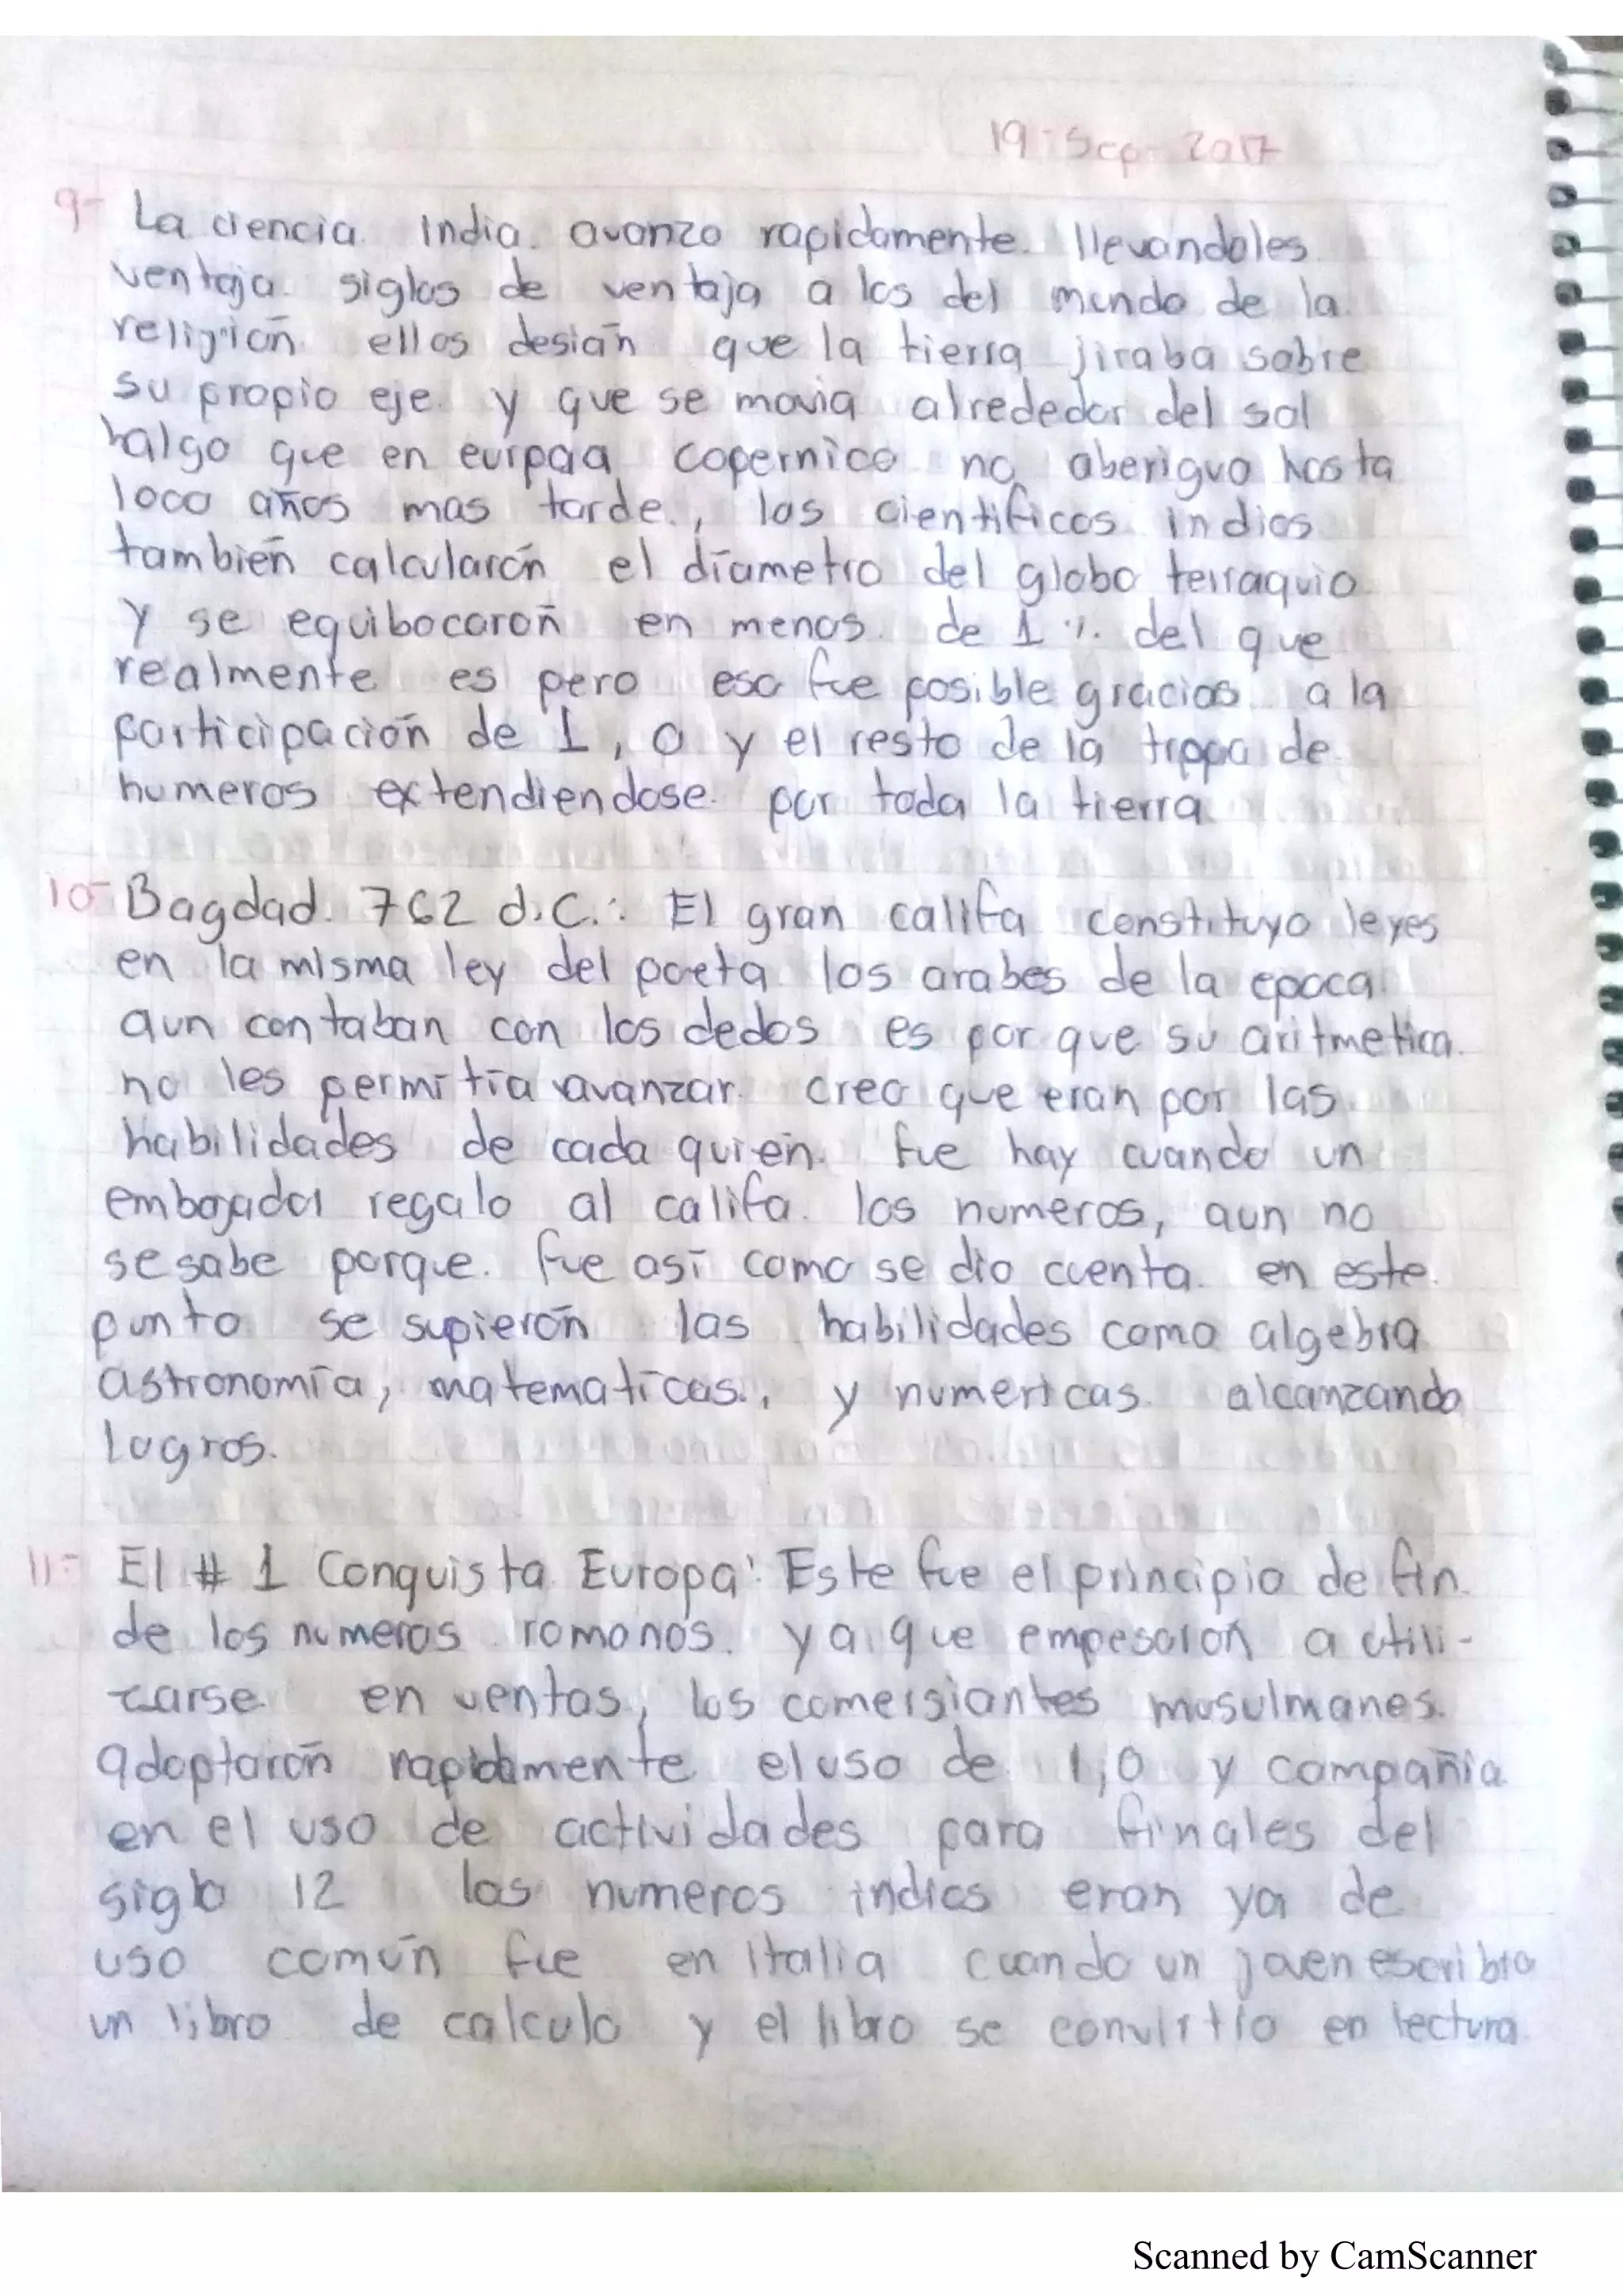 19-Sep-2017
9- La ciencia India avanzo rapidamente llevandoles
ventaja siglos de ventaja a los del mundo de la
religion ellos desian que la tierra jiraba sobre
su propio eje y que se movia alrededor del sol
halgo que en eurpoa copernico no aberiguo hasta
1000 años mas tarde, los cientificos indios
también calcularón el díametro del globo terraquio
y se equibocarón en menos de 1 % del que
realmente es pero eso fue posible gracias a la
participación de 1, 0 y el resto de la tropa de
numeros extendiendose por toda la tierra
10- Bagdad 762 d.C.: El gran califa constituyo leyes
en la misma ley del poeta los arabes de la epoca
aun contaban con los dedos es por que su aritmetica
no les permitía avanzar creo que eran por las
habilidades de cada quien. fue hay cuando un
embajador regalo al califa los numeros, aun no
se sabe porque. fue así como se dio cuenta en este
punto se supierón las habilidades como algebra
astronomía, matematícas., y numericas alcanzando
logros.
11- El # 1 Conquista Europa: Este fue el principio de fin
de los numeros romanos. ya que empesarón a utili-
zarse en ventas, los comersiantes musulmanes.
adoptarón rapidamente el uso de 1,0 y compañía
en el uso de actividades para finales del
siglo 12 los numeros indios eran ya de
uso común fue en Italia cuando un joven escribio
un libro de calculo y el libro se convirtio en lectura
Scanned by CamScanner